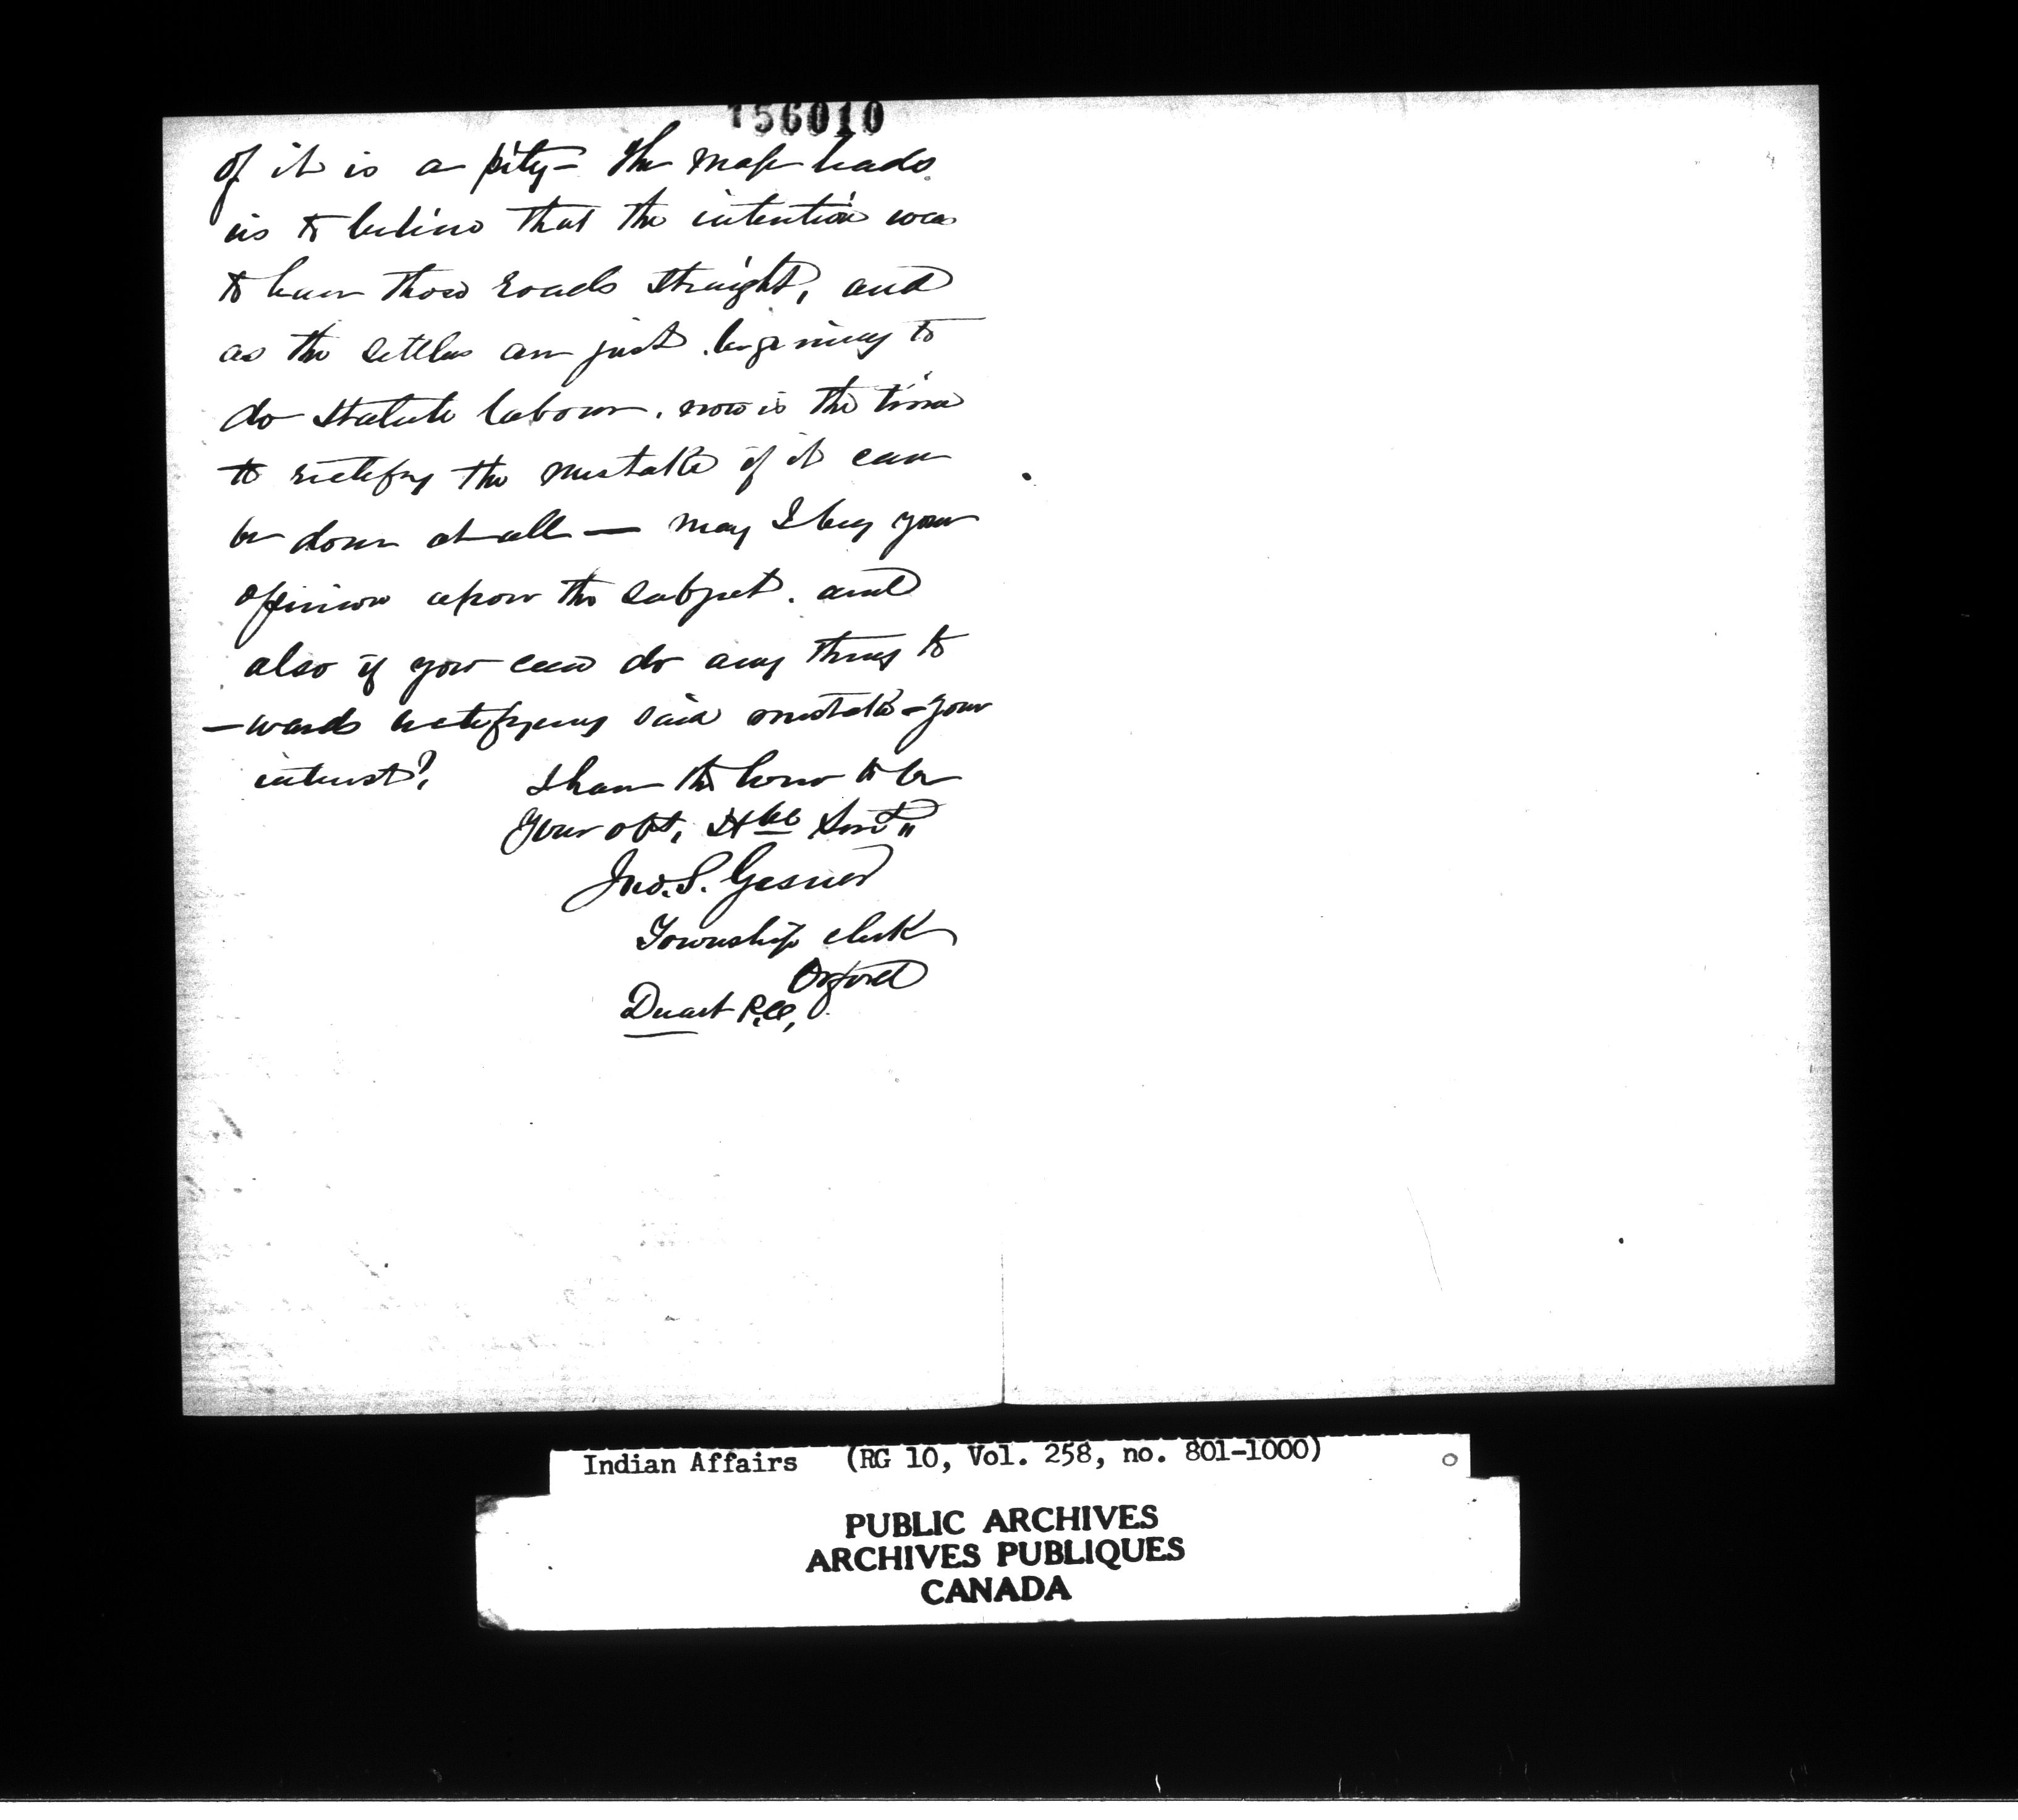 156010
of it is a pity - The map leads
us to believe that the intention was
to have those roads straight, and
as the settlers are just beginning to
do Statute labour, now is the time
to rectify the mistake if it can
be done at all — may I beg your
opinion upon the subject. and
also if you can do any thing to
-wards rectifying said mistake - your
interest?
I have the honor to be
Your obt, Hble Servt
Jno. S. Gesner
Township clerk
Orford
Duart P.O,
Indian Affairs (RG 10, Vol. 258, no. 801-1000)
PUBLIC ARCHIVES
ARCHIVES PUBLIQUES
CANADA